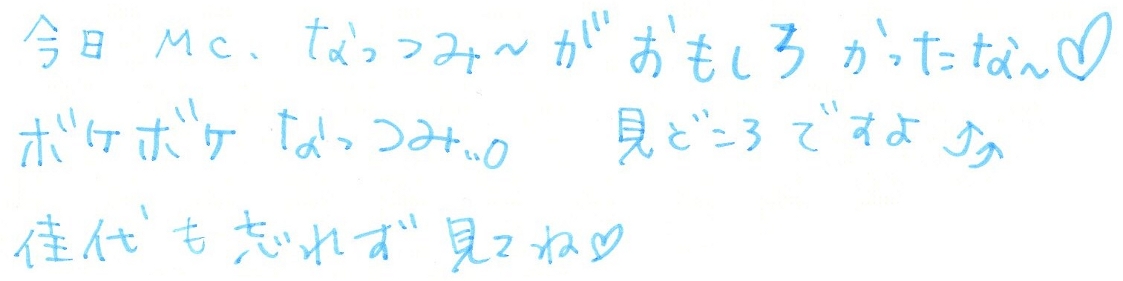 今日 MC、なっつみ〜がおもしろかったな〜♡
ボケボケなっつみ。。 見どころですよ⤴⤴
佳代も忘れず見てね♡